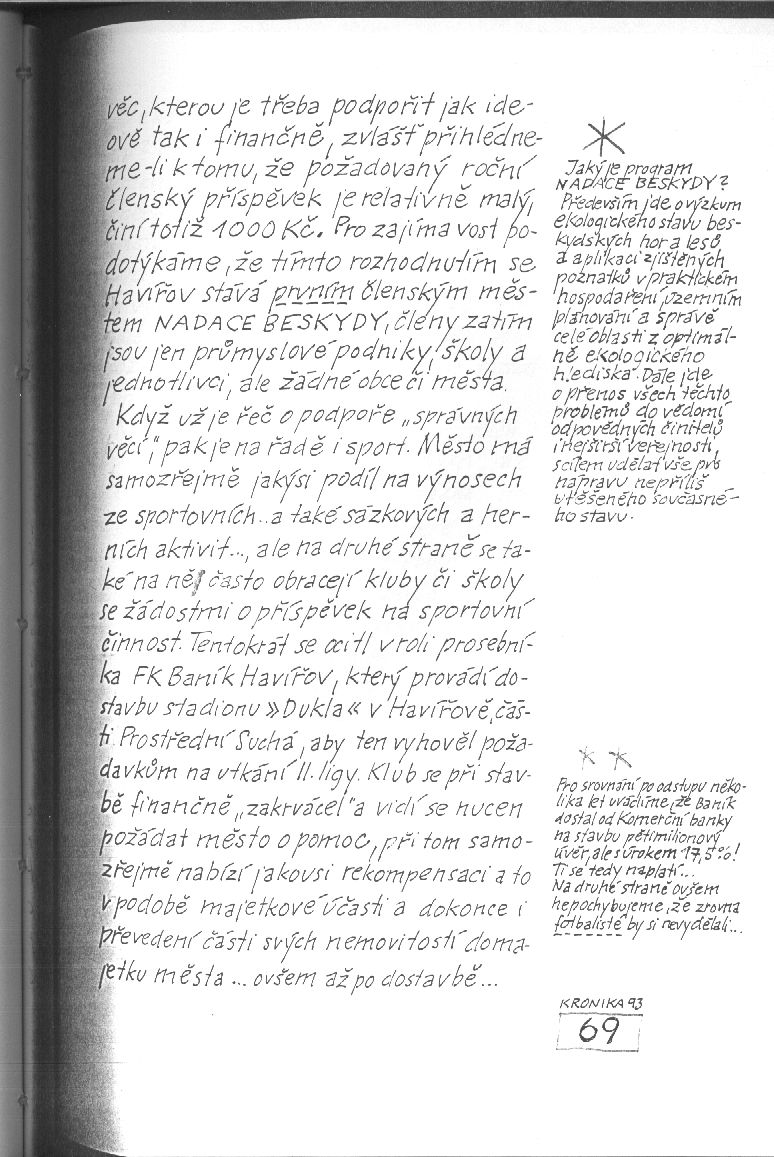 věc, kterou je třeba podpořit jak ide-
ově tak i finančně, zvlášť přihlédne-
me-li k tomu, že požadovaný roční
členský příspěvek je relativně malý,
činí totiž 1000 Kč. Pro zajímavost po-
dotýkáme, že tímto rozhodnutím se
Havířov stává prvním členským měs-
tem NADACE BESKYDY, členy zatím
jsou jen průmyslové podniky, školy a
jednotlivci, ale žádné obce či města.
Když už je řeč o podpoře „správných
věcí", pak je na řadě i sport. Město má
samozřejmě jakýsi podíl na výnosech
ze sportovních.. a také sázkových a her-
ních aktivit..., ale na druhé straně se ta-
ké na něj často obracejí kluby či školy
se žádostmi o příspěvek na sportovní
činnost. Tentokrát se ocitl v roli prosební-
ka FK Baník Havířov, který provádí do-
stavbu stadionu »Dukla« v Havířově, čás-
ti Prostřední Suchá, aby ten vyhověl poža-
davkům na utkání II. ligy. Klub se při stav-
bě finančně „zakrvácel" a vidí se nucen
požádat město o pomoc, při tom samo-
zřejmě nabízí jakousi rekompensaci a to
v podobě majetkové účasti a dokonce i
převedení části svých nemovitostí do ma-
jetku města ... ovšem až po dostavbě...
*
Jaký je program
NADACE BESKYDY?
Především jde o výzkum
ekologického stavu bes-
kydských hor a lesů
a aplikaci zjištěných
poznatků v praktickém
hospodaření, územním
plánování a správě
celé oblasti z optimál-
ně ekologického
hlediska. Dále jde
o přenos všech těchto
problémů do vědomí
odpovědných činitelů
i nejširší veřejnosti,
s cílem udělat vše pro
nápravu nepříliš
utěšeného současné-
ho stavu.
* *
Pro srovnání po odstupu něko-
lika let uvádíme, že Baník
dostal od Komerční banky
na stavbu pětimilionový
úvěr, ale s úrokem 17,5%!
Ti se tedy naplatí...
Na druhé straně ovšem
nepochybujeme, že zrovna
fotbalisté by si nevydělali...
KRONIKA 93
69